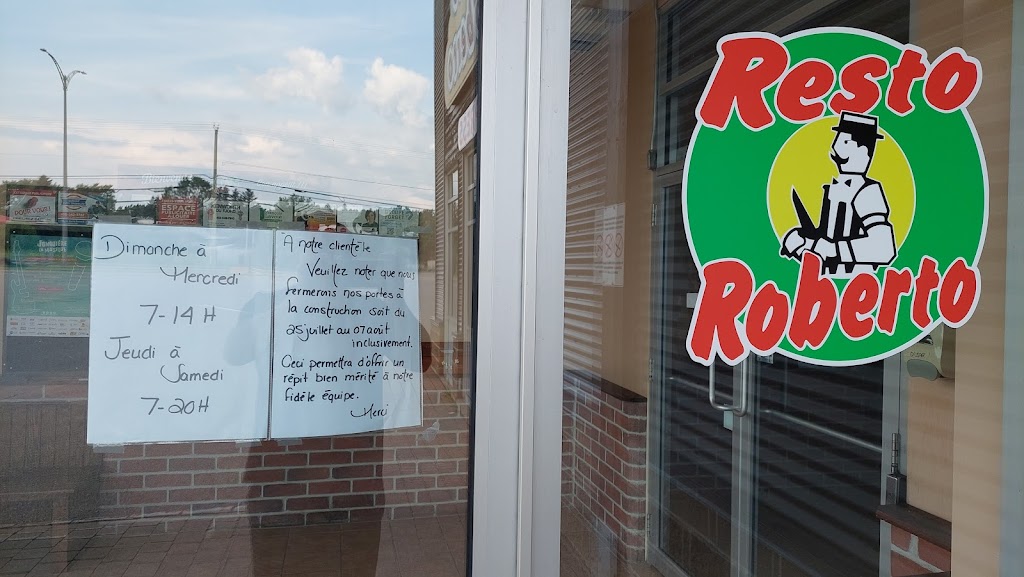 Dimanche à
Mercredi
7-14 H
Jeudi à
Samedi
7-20 H
À notre clientèle
Veuillez noter que nous
fermerons nos portes à
la construction soit du
25 juillet au 07 août
inclusivement.
Ceci permettra d'offrir un
répit bien mérité à notre
fidèle équipe.
Merci
Resto
Roberto